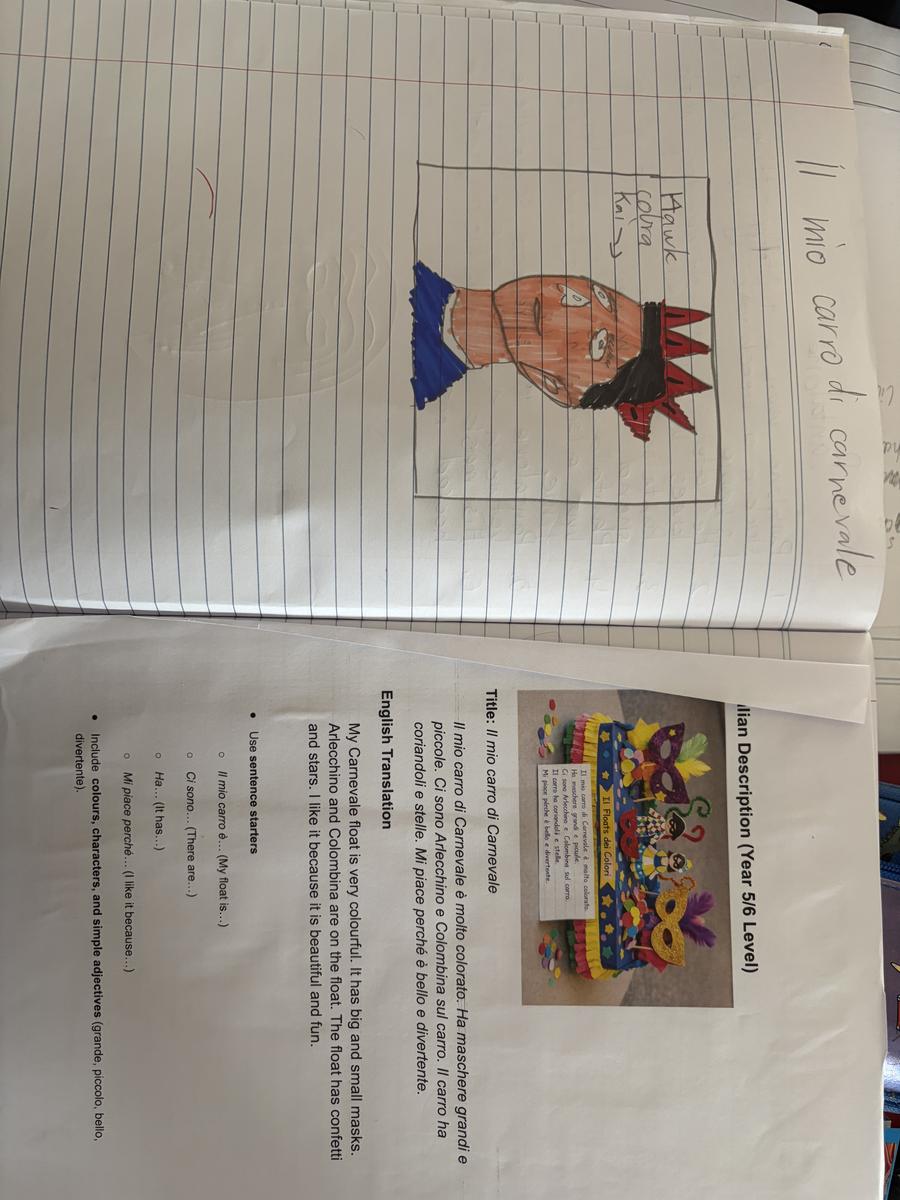 il mio carro di carnevale
Hawk
cobra
Kai
lian Description (Year 5/6 Level)
Il Floats dei Colori
Il mio carro di Carnevale è molto colorato.
Ha maschere grandi e
Ci sono Arlecchino e Colombina sul carro.
Il carro ha coriandoli e stelle.
Mi piace perché è bello e divertente.
Title: Il mio carro di Carnevale
Il mio carro di Carnevale è molto colorato. Ha maschere grandi e
piccole. Ci sono Arlecchino e Colombina sul carro. Il carro ha
coriandoli e stelle. Mi piace perché è bello e divertente.
English Translation
My Carnevale float is very colourful. It has big and small masks.
Arlecchino and Colombina are on the float. The float has confetti
and stars. I like it because it is beautiful and fun.
• Use sentence starters
○ Il mio carro è… (My float is…)
○ Ci sono… (There are…)
○ Ha… (It has…)
○ Mi piace perché… (I like it because…)
• Include colours, characters, and simple adjectives (grande, piccolo, bello,
divertente).